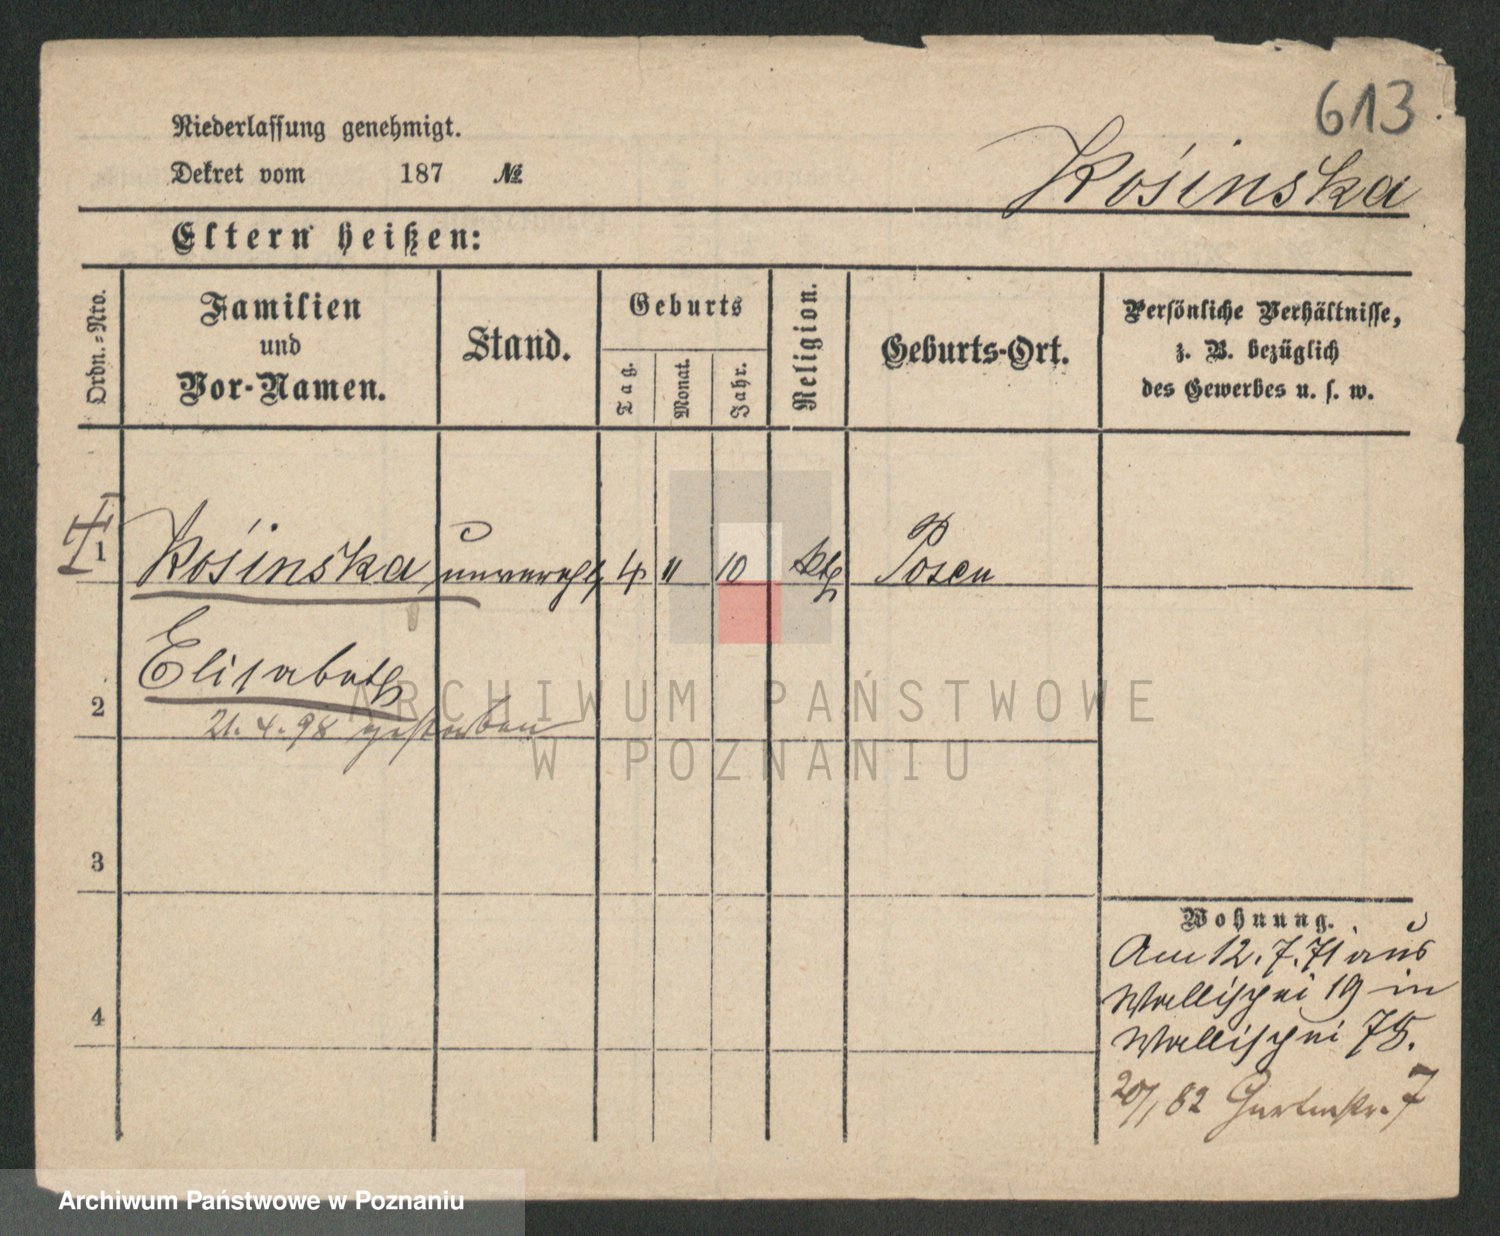 613
Niederlassung genehmigt.
Dekret vom 187 №
Kośinska
Eltern heißen:
Ordn.-Nro.
Familien
und
Vor-Namen.
Stand.
Geburts
Tag.
Monat.
Jahr.
Religion.
Geburts-Ort.
Persönliche Verhältnisse,
z. B. bezüglich
des Gewerbes u. s. w.
1 Kośinska unverehl 4 11 10 kth Posen
Elisabeth
2
21.4.98 gestorben
ARCHIWUM PAŃSTWOWE
W POZNANIU
3
4
Wohnung.
Am 12.7.71 aus
Wallischei 19 in
Wallischei 75.
20/1 82 Gartenstr. 7
Archiwum Państwowe w Poznaniu